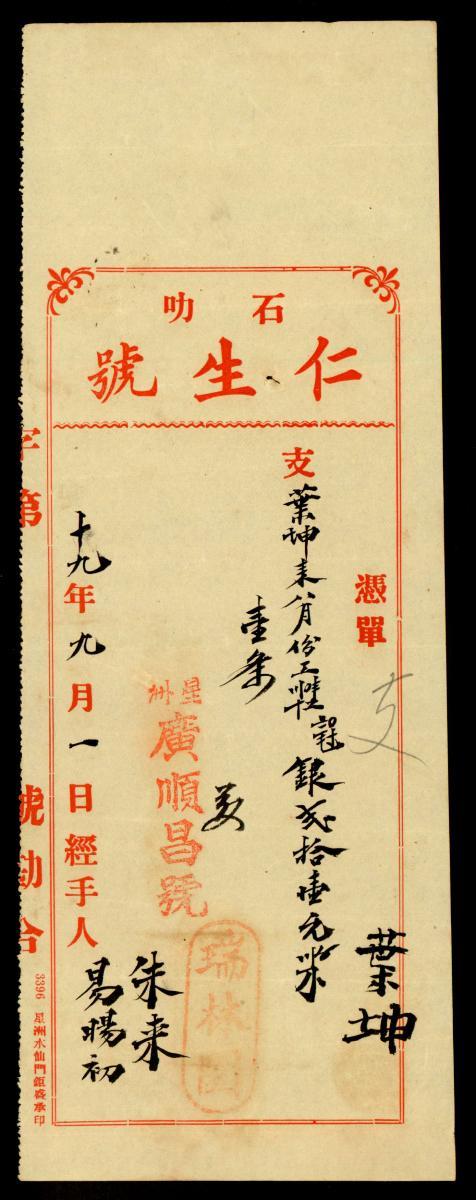 石叻
仁生號
憑單
支葉坤來八月份工 銀弍拾壹元
壹条
星洲
廣順昌號
瑞林園
十九年九月一日經手人
朱来
易暢初
葉坤
支
字第 號勘合
3396 星洲水仙門鉅盛承印